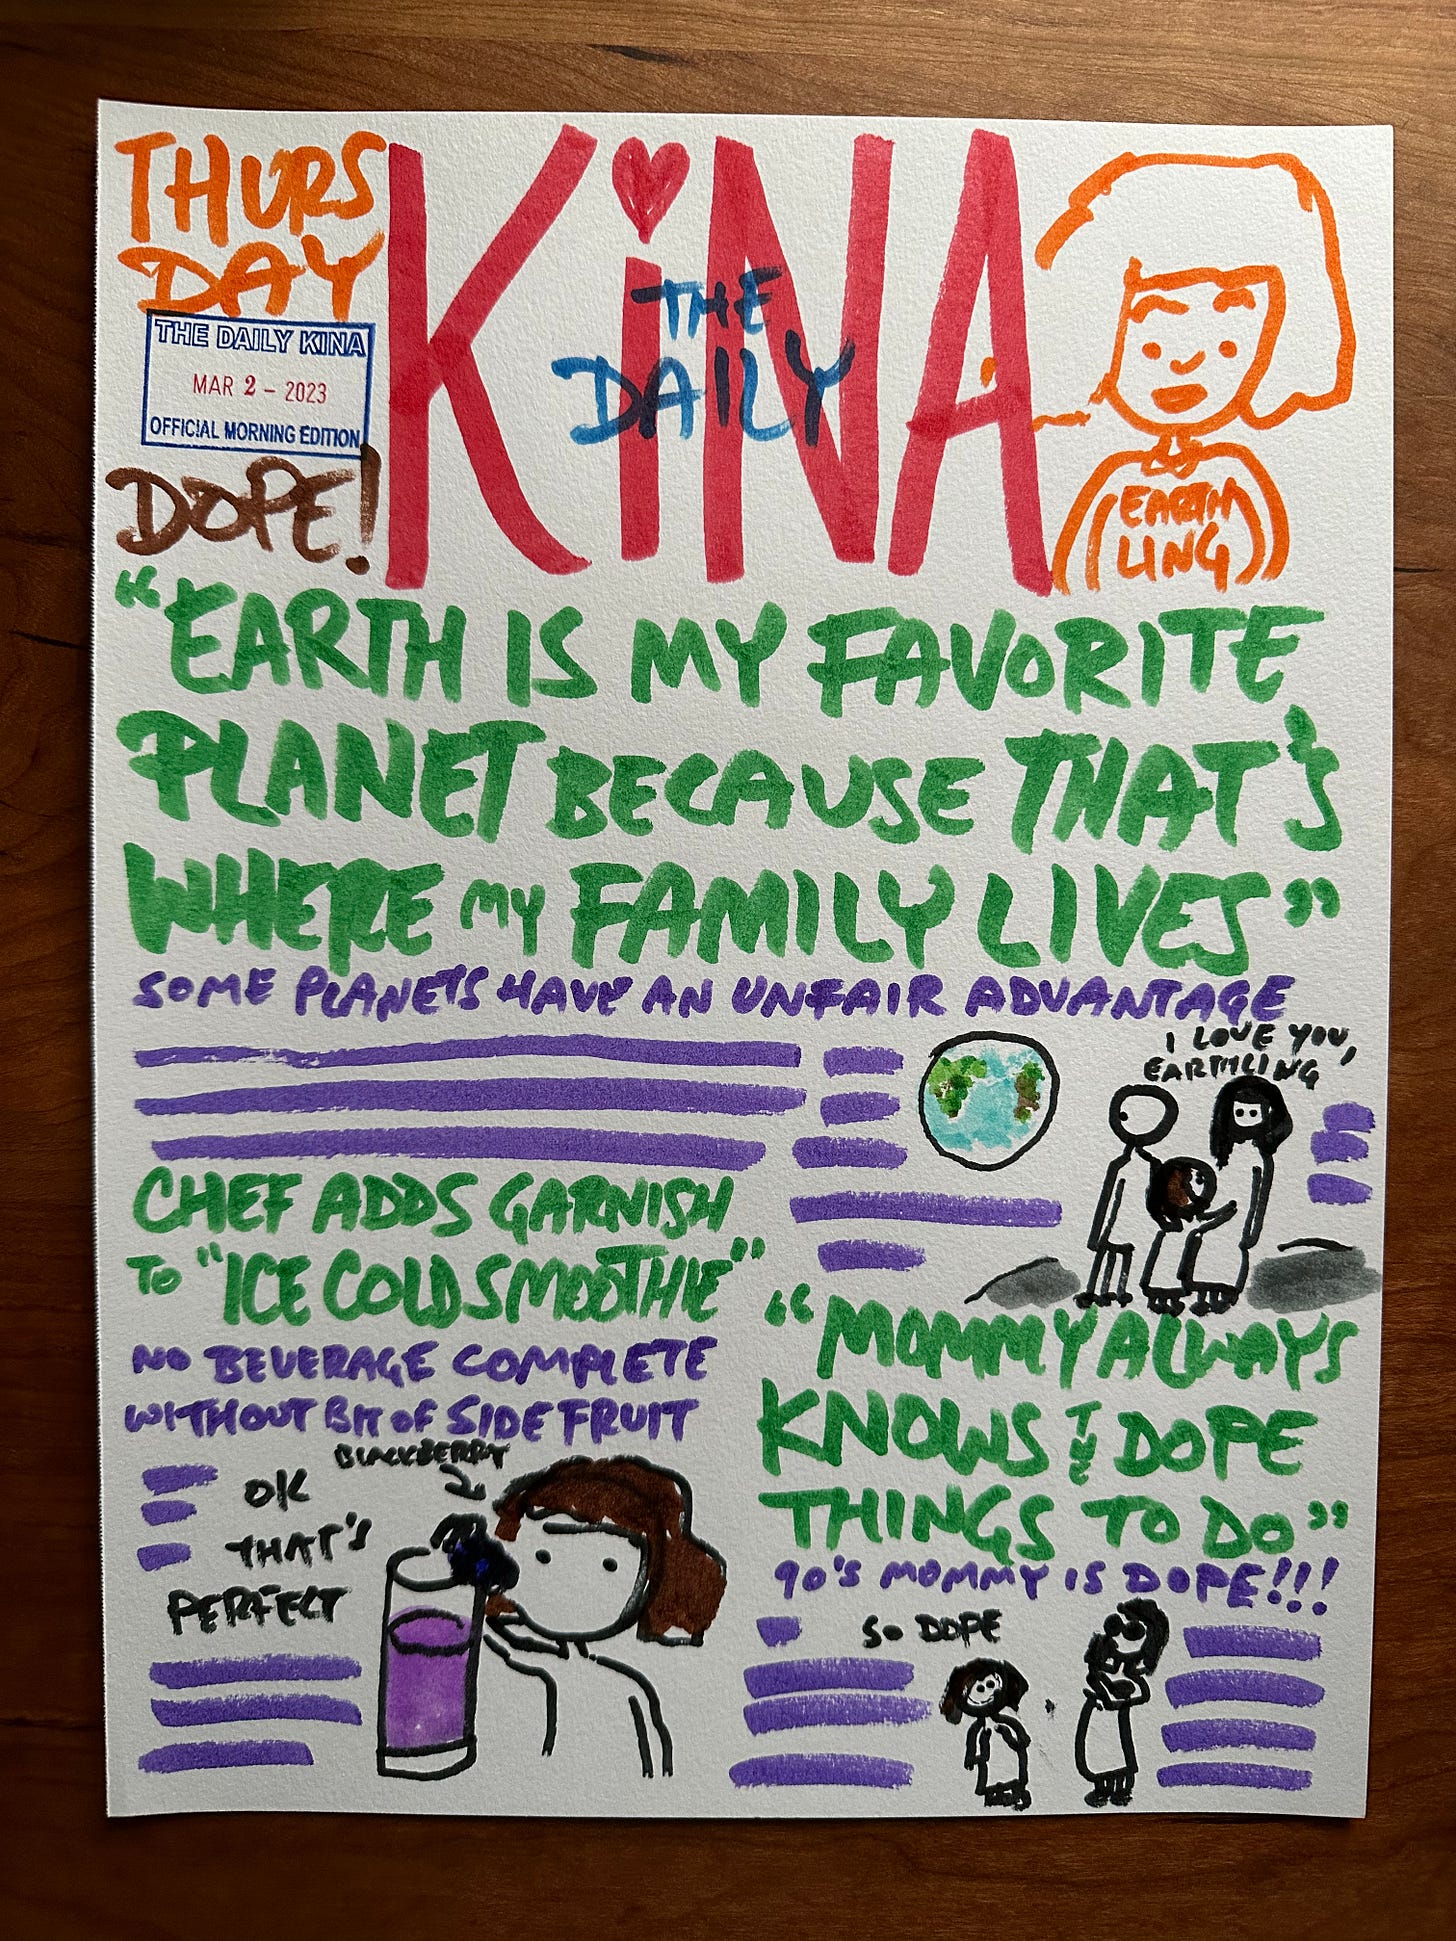 THURS
DAY
THE DAILY KINA
MAR 2 - 2023
OFFICIAL MORNING EDITION
DOPE!
KiNA
THE
DAILY
EARTH
LING
"EARTH IS MY FAVORITE
PLANET BECAUSE THAT'S
WHERE MY FAMILY LIVES"
SOME PLANETS HAVE AN UNFAIR ADVANTAGE
I LOVE YOU,
EARTHLING
CHEF ADDS GARNISH
TO "ICE COLD SMOOTHIE"
NO BEVERAGE COMPLETE
WITHOUT BIT OF SIDE FRUIT
BLACKBERRY
OK
THAT'S
PERFECT
"MOMMY ALWAYS
KNOWS THE DOPE
THINGS TO DO"
90'S MOMMY IS DOPE!!!
SO DOPE